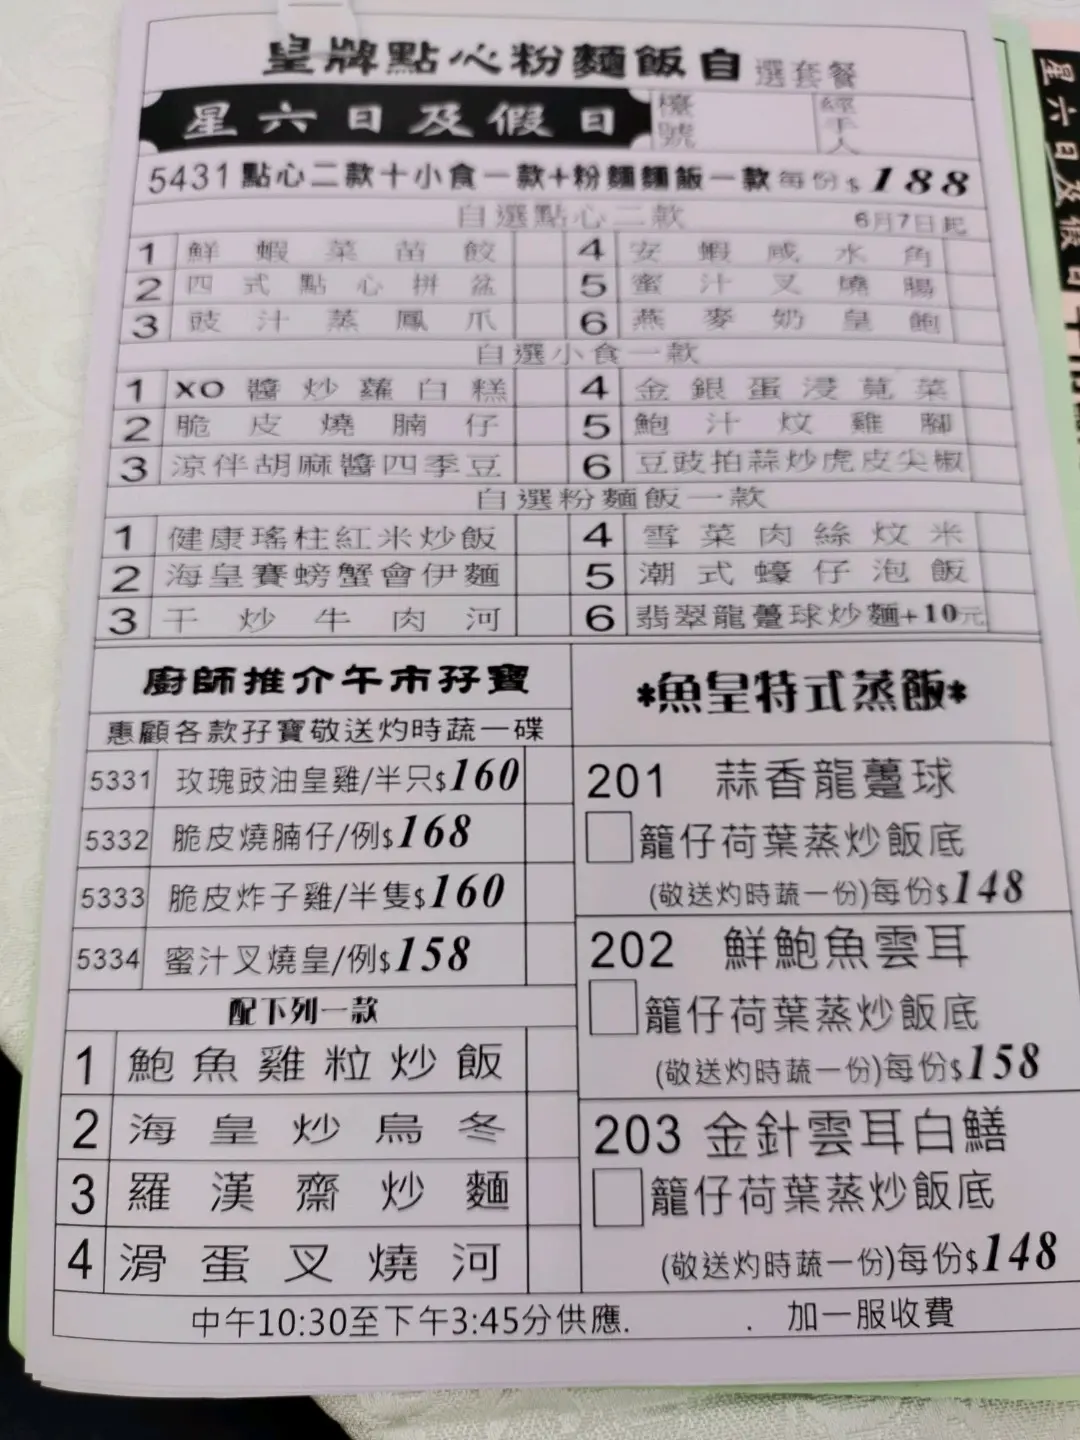 皇牌點心粉麵飯自選套餐
星六日及假日 檯號 經手人
5431點心二款十小食一款+粉麵麵飯一款每份$188
自選點心二款 6月7日起
1 鮮蝦菜苗餃 4 安蝦咸水角
2 四式點心拼盆 5 蜜汁叉燒腸
3 豉汁蒸鳳爪 6 燕麥奶皇飽
自選小食一款
1 XO醬炒蘿白糕 4 金銀蛋浸莧菜
2 脆皮燒腩仔 5 鮑汁炆雞腳
3 涼伴胡麻醬四季豆 6 豆豉拍蒜炒虎皮尖椒
自選粉麵飯一款
1 健康瑤柱紅米炒飯 4 雪菜肉絲炆米
2 海皇賽螃蟹會伊麵 5 潮式蠔仔泡飯
3 干炒牛肉河 6 翡翠龍躉球炒麵+10元
廚師推介午市孖寶
惠顧各款孖寶敬送灼時蔬一碟
5331 玫瑰豉油皇雞/半只$160
5332 脆皮燒腩仔/例$168
5333 脆皮炸子雞/半隻$160
5334 蜜汁叉燒皇/例$158
配下列一款
1 鮑魚雞粒炒飯
2 海皇炒烏冬
3 羅漢齋炒麵
4 滑蛋叉燒河
*魚皇特式蒸飯*
201 蒜香龍躉球
籠仔荷葉蒸炒飯底
(敬送灼時蔬一份)每份$148
202 鮮鮑魚雲耳
籠仔荷葉蒸炒飯底
(敬送灼時蔬一份)每份$158
203 金針雲耳白鱔
籠仔荷葉蒸炒飯底
(敬送灼時蔬一份)每份$148
中午10:30至下午3:45分供應. . 加一服收費
星六日及假日